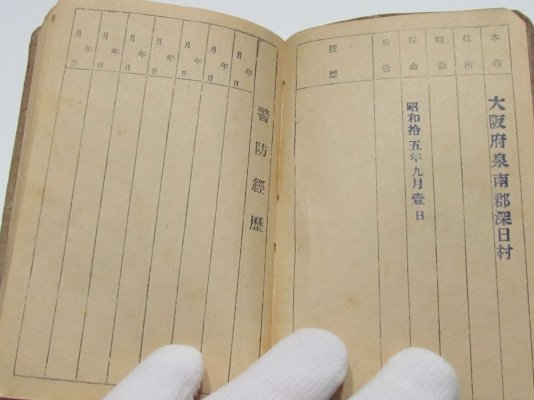 本籍
大阪府泉南郡深日村
住所
職業
拝命
昭和拾五年九月壹日
兵役
履歴
警防經歷
年月日
年月日
年月日
年月日
年月日
年月日
年月日